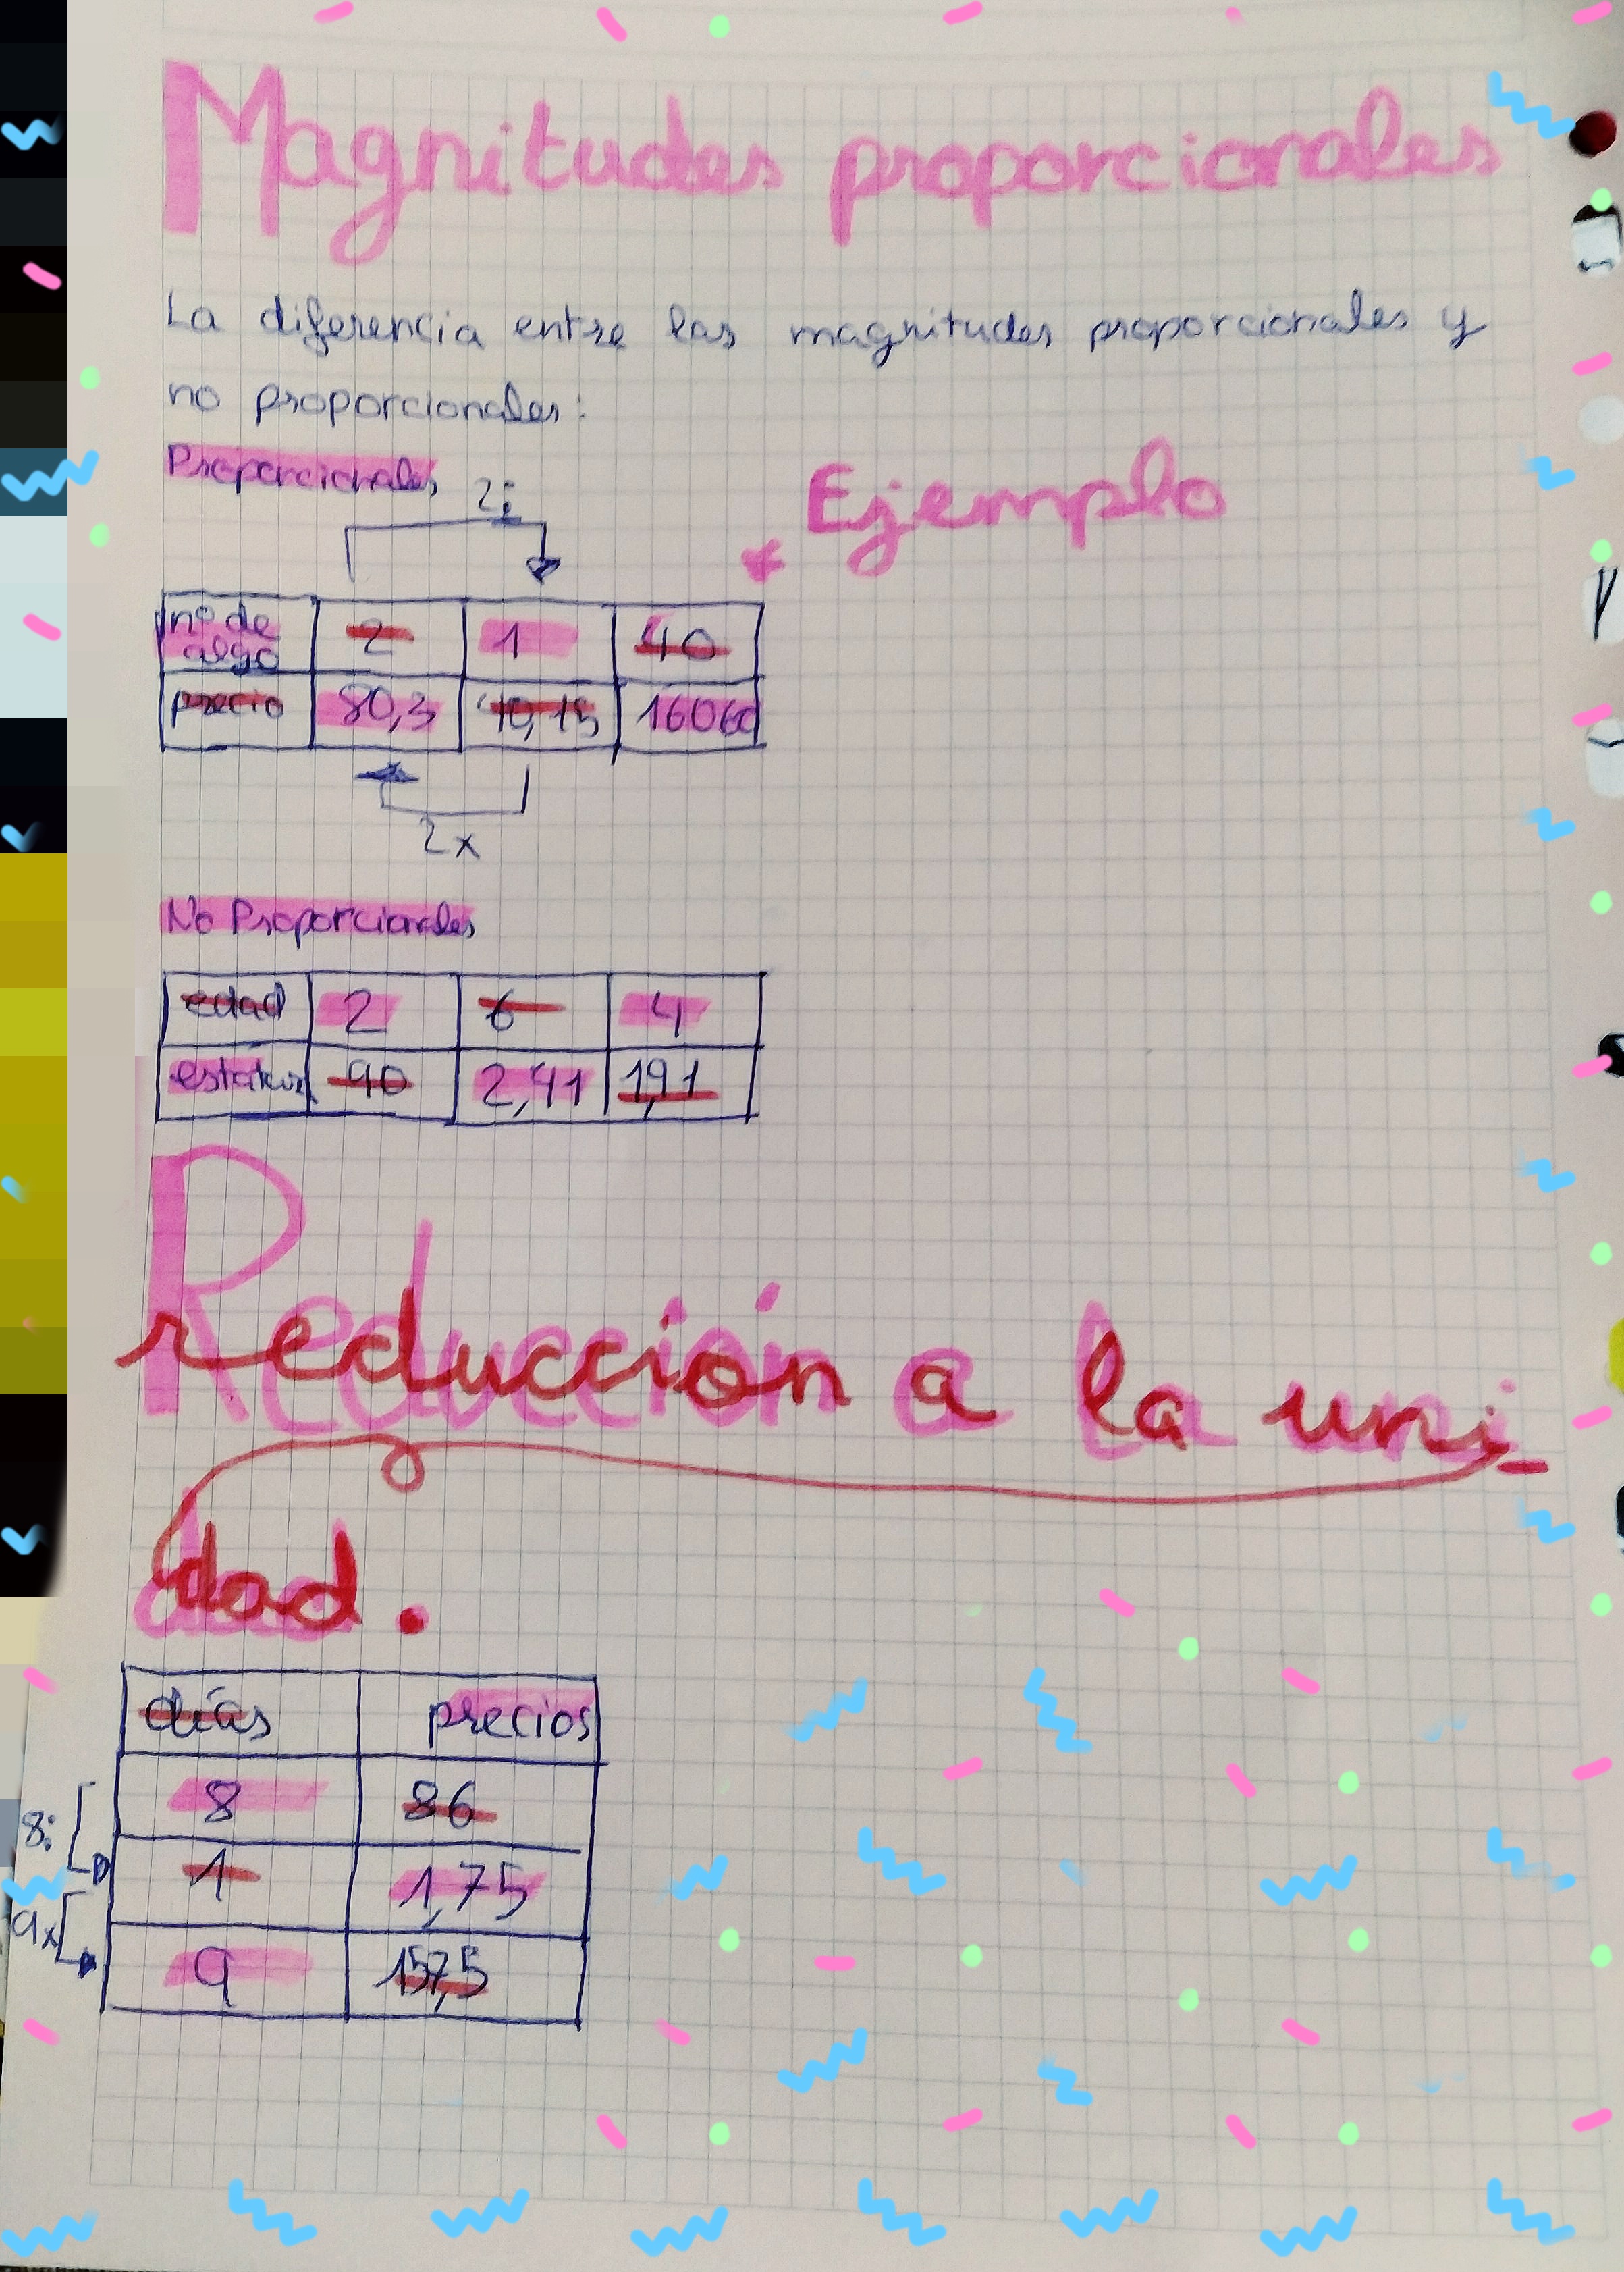 Magnitudes proporcionales
La diferencia entre las magnitudes proporcionales y
no proporcionales:
Proporcionales
2:
* Ejemplo
nº de algo 2 1 40
precio 80,3 40,15 16060
2x
No Proporcionales
edad 2 6 4
estatura 90 2,41 1,91
Reducción a la uni_
dad.
días precios
8 86
8:
1 1,75
9x
9 157,5